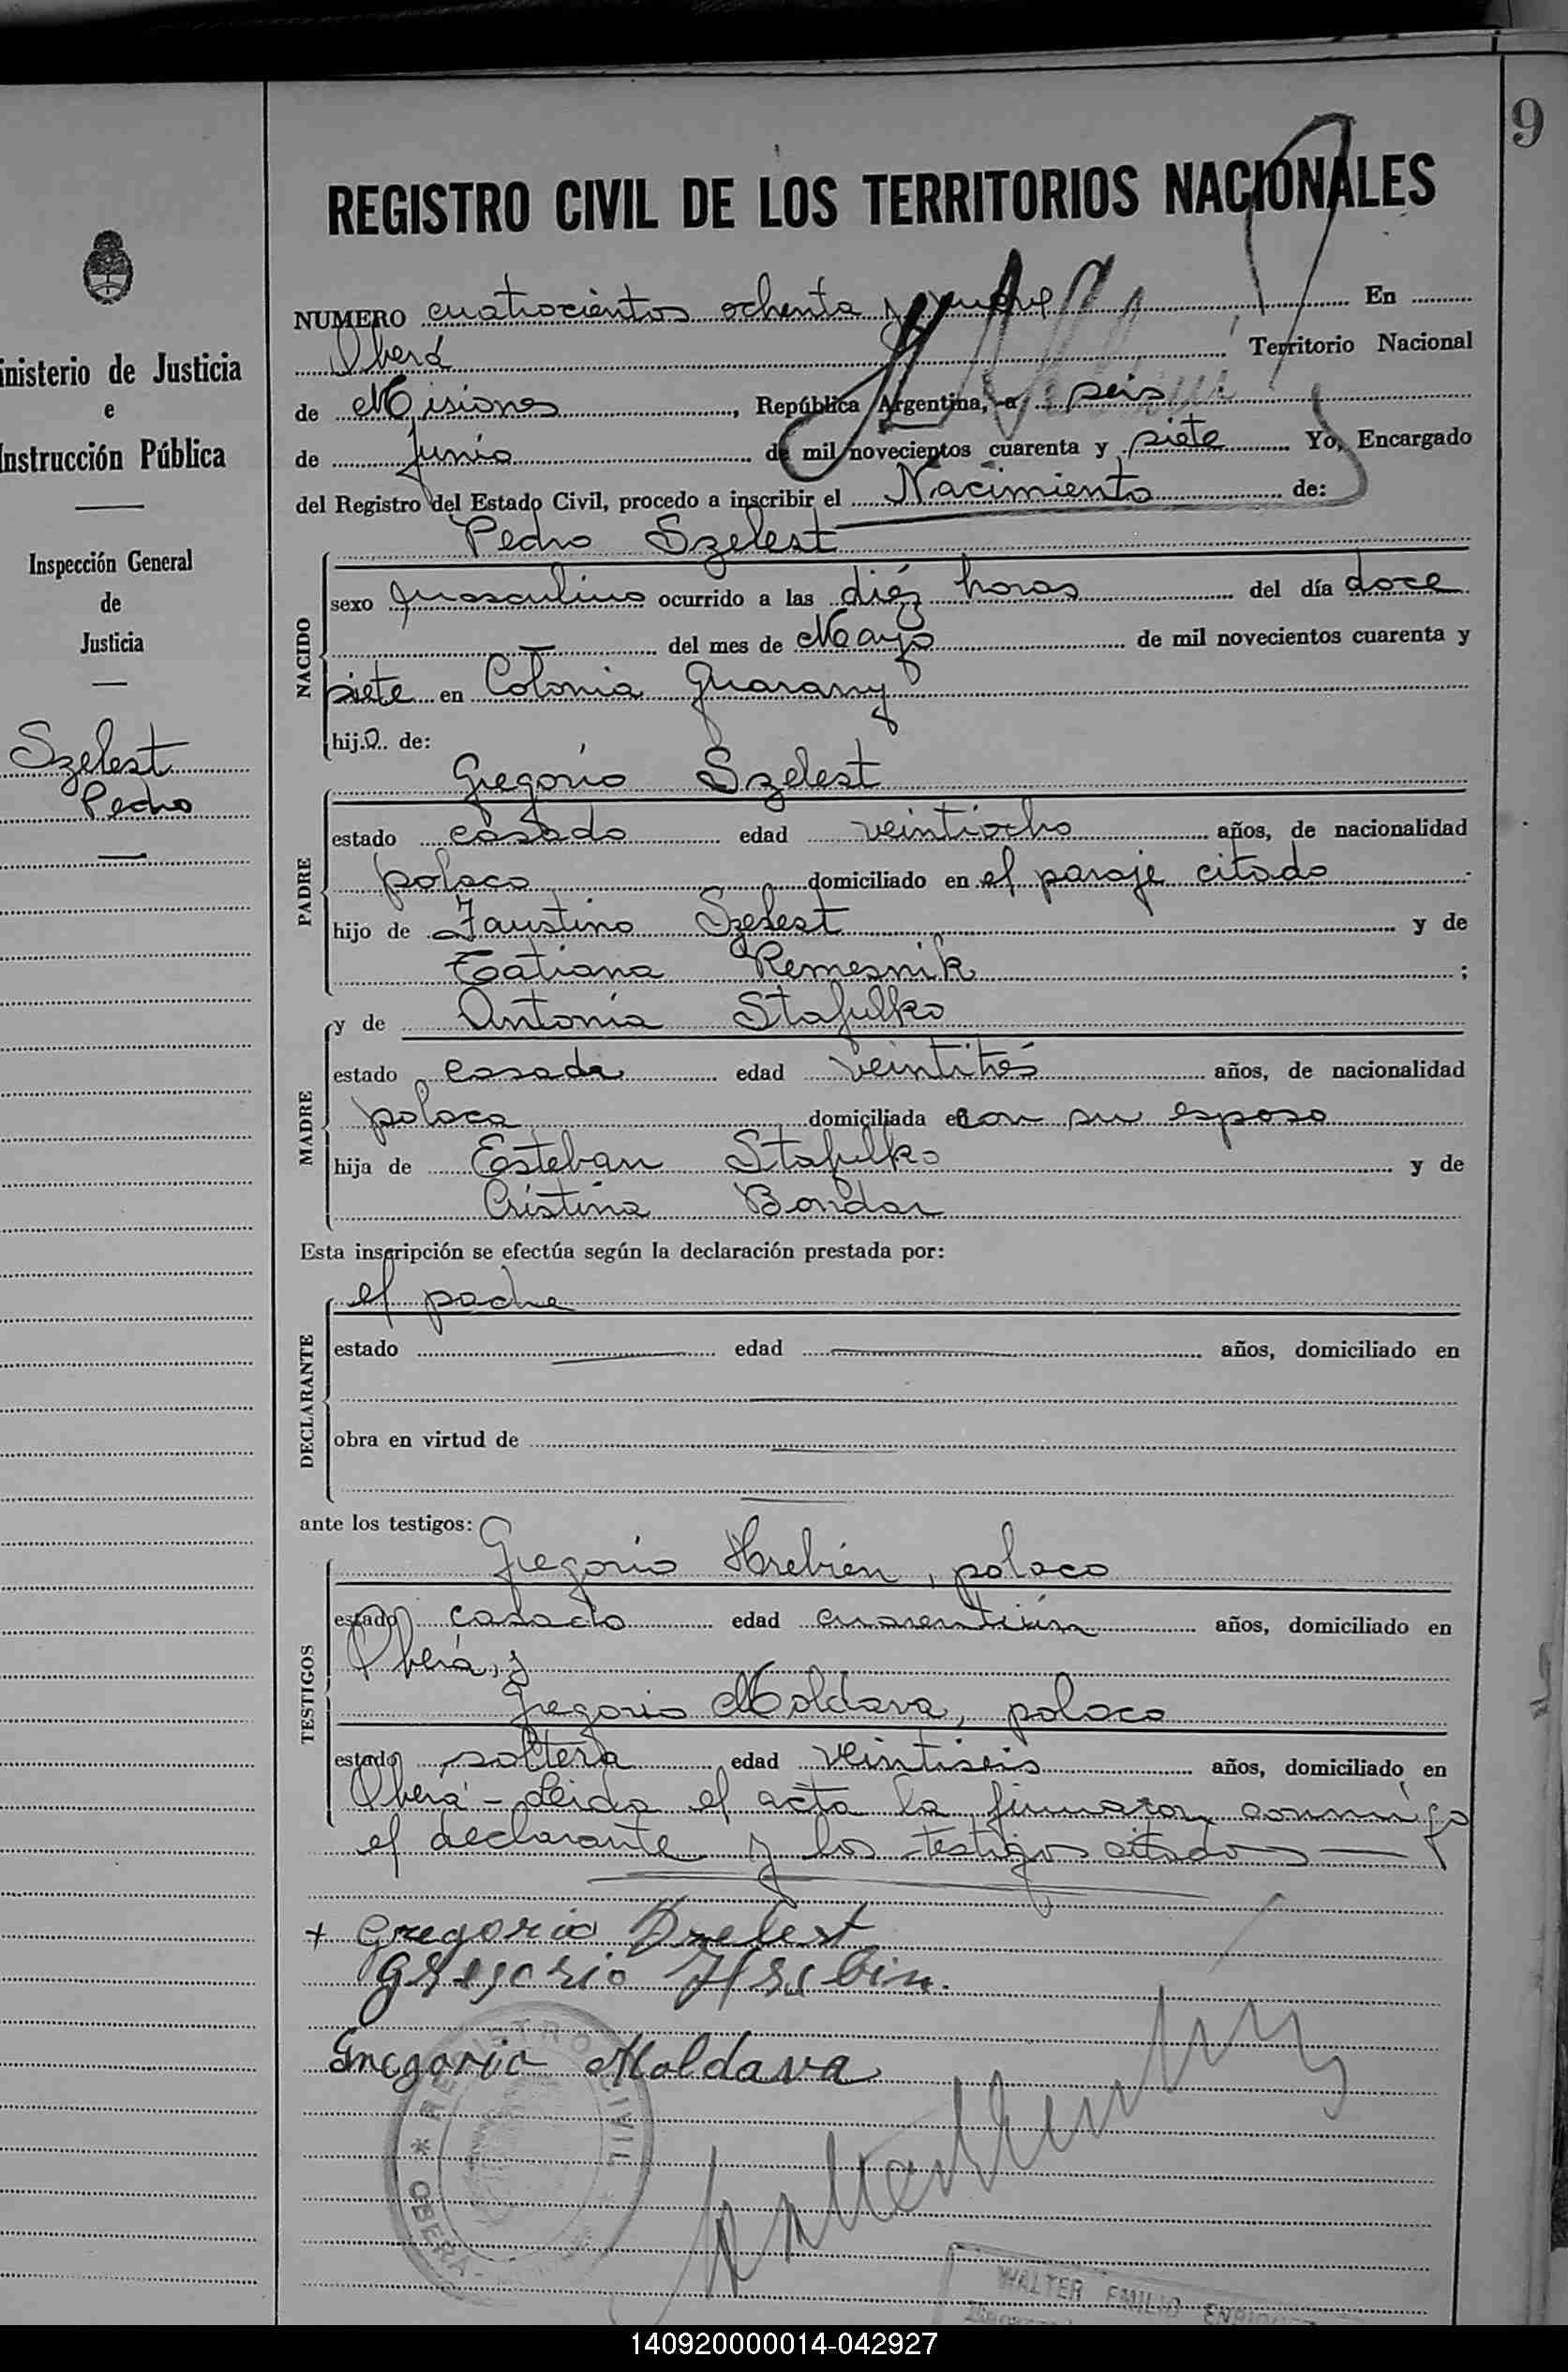 9
REGISTRO CIVIL DE LOS TERRITORIOS NACIONALES
NUMERO cuatrocientos ochenta y nueve En
Oberá Territorio Nacional
de Misiones, República Argentina, a seis
de junio de mil novecientos cuarenta y siete Yo, Encargado
del Registro del Estado Civil, procedo a inscribir el Nacimiento de:
Pedro Szelest
NACIDO
sexo masculino ocurrido a las diéz horas del día doce
del mes de Mayo de mil novecientos cuarenta y
siete en Colonia Guarany
hijo de:
Gregorio Szelest
PADRE
estado casado edad veintiocho años, de nacionalidad
polaco domiciliado en el paraje citado
hijo de Faustino Szelest y de
Tatiana Remesnik;
MADRE
y de Antonia Stafulko
estado casada edad veintitrés años, de nacionalidad
polaca domiciliada con su esposo
hija de Esteban Stafulko y de
Cristina Bondar
Esta inscripción se efectúa según la declaración prestada por:
el padre
DECLARANTE
estado edad años, domiciliado en
obra en virtud de
ante los testigos:
TESTIGOS
Gregorio Hrebién, polaco
estado casado edad cuarentiún años, domiciliado en
Oberá, y
Gregorio Moldava, polaco
estado soltero edad veintiseis años, domiciliado en
Oberá - Leida el acta la firmaron conmigo
el declarante y los testigos citados —
+ Gregorio Szelest
Gregorio Hrebin.
Gregorio Moldava
REGISTRO CIVIL
* OBERA -
WALTER EMILIO
inisterio de Justicia
e
Instrucción Pública
Inspección General
de
Justicia
Szelest
Pedro
140920000014-042927